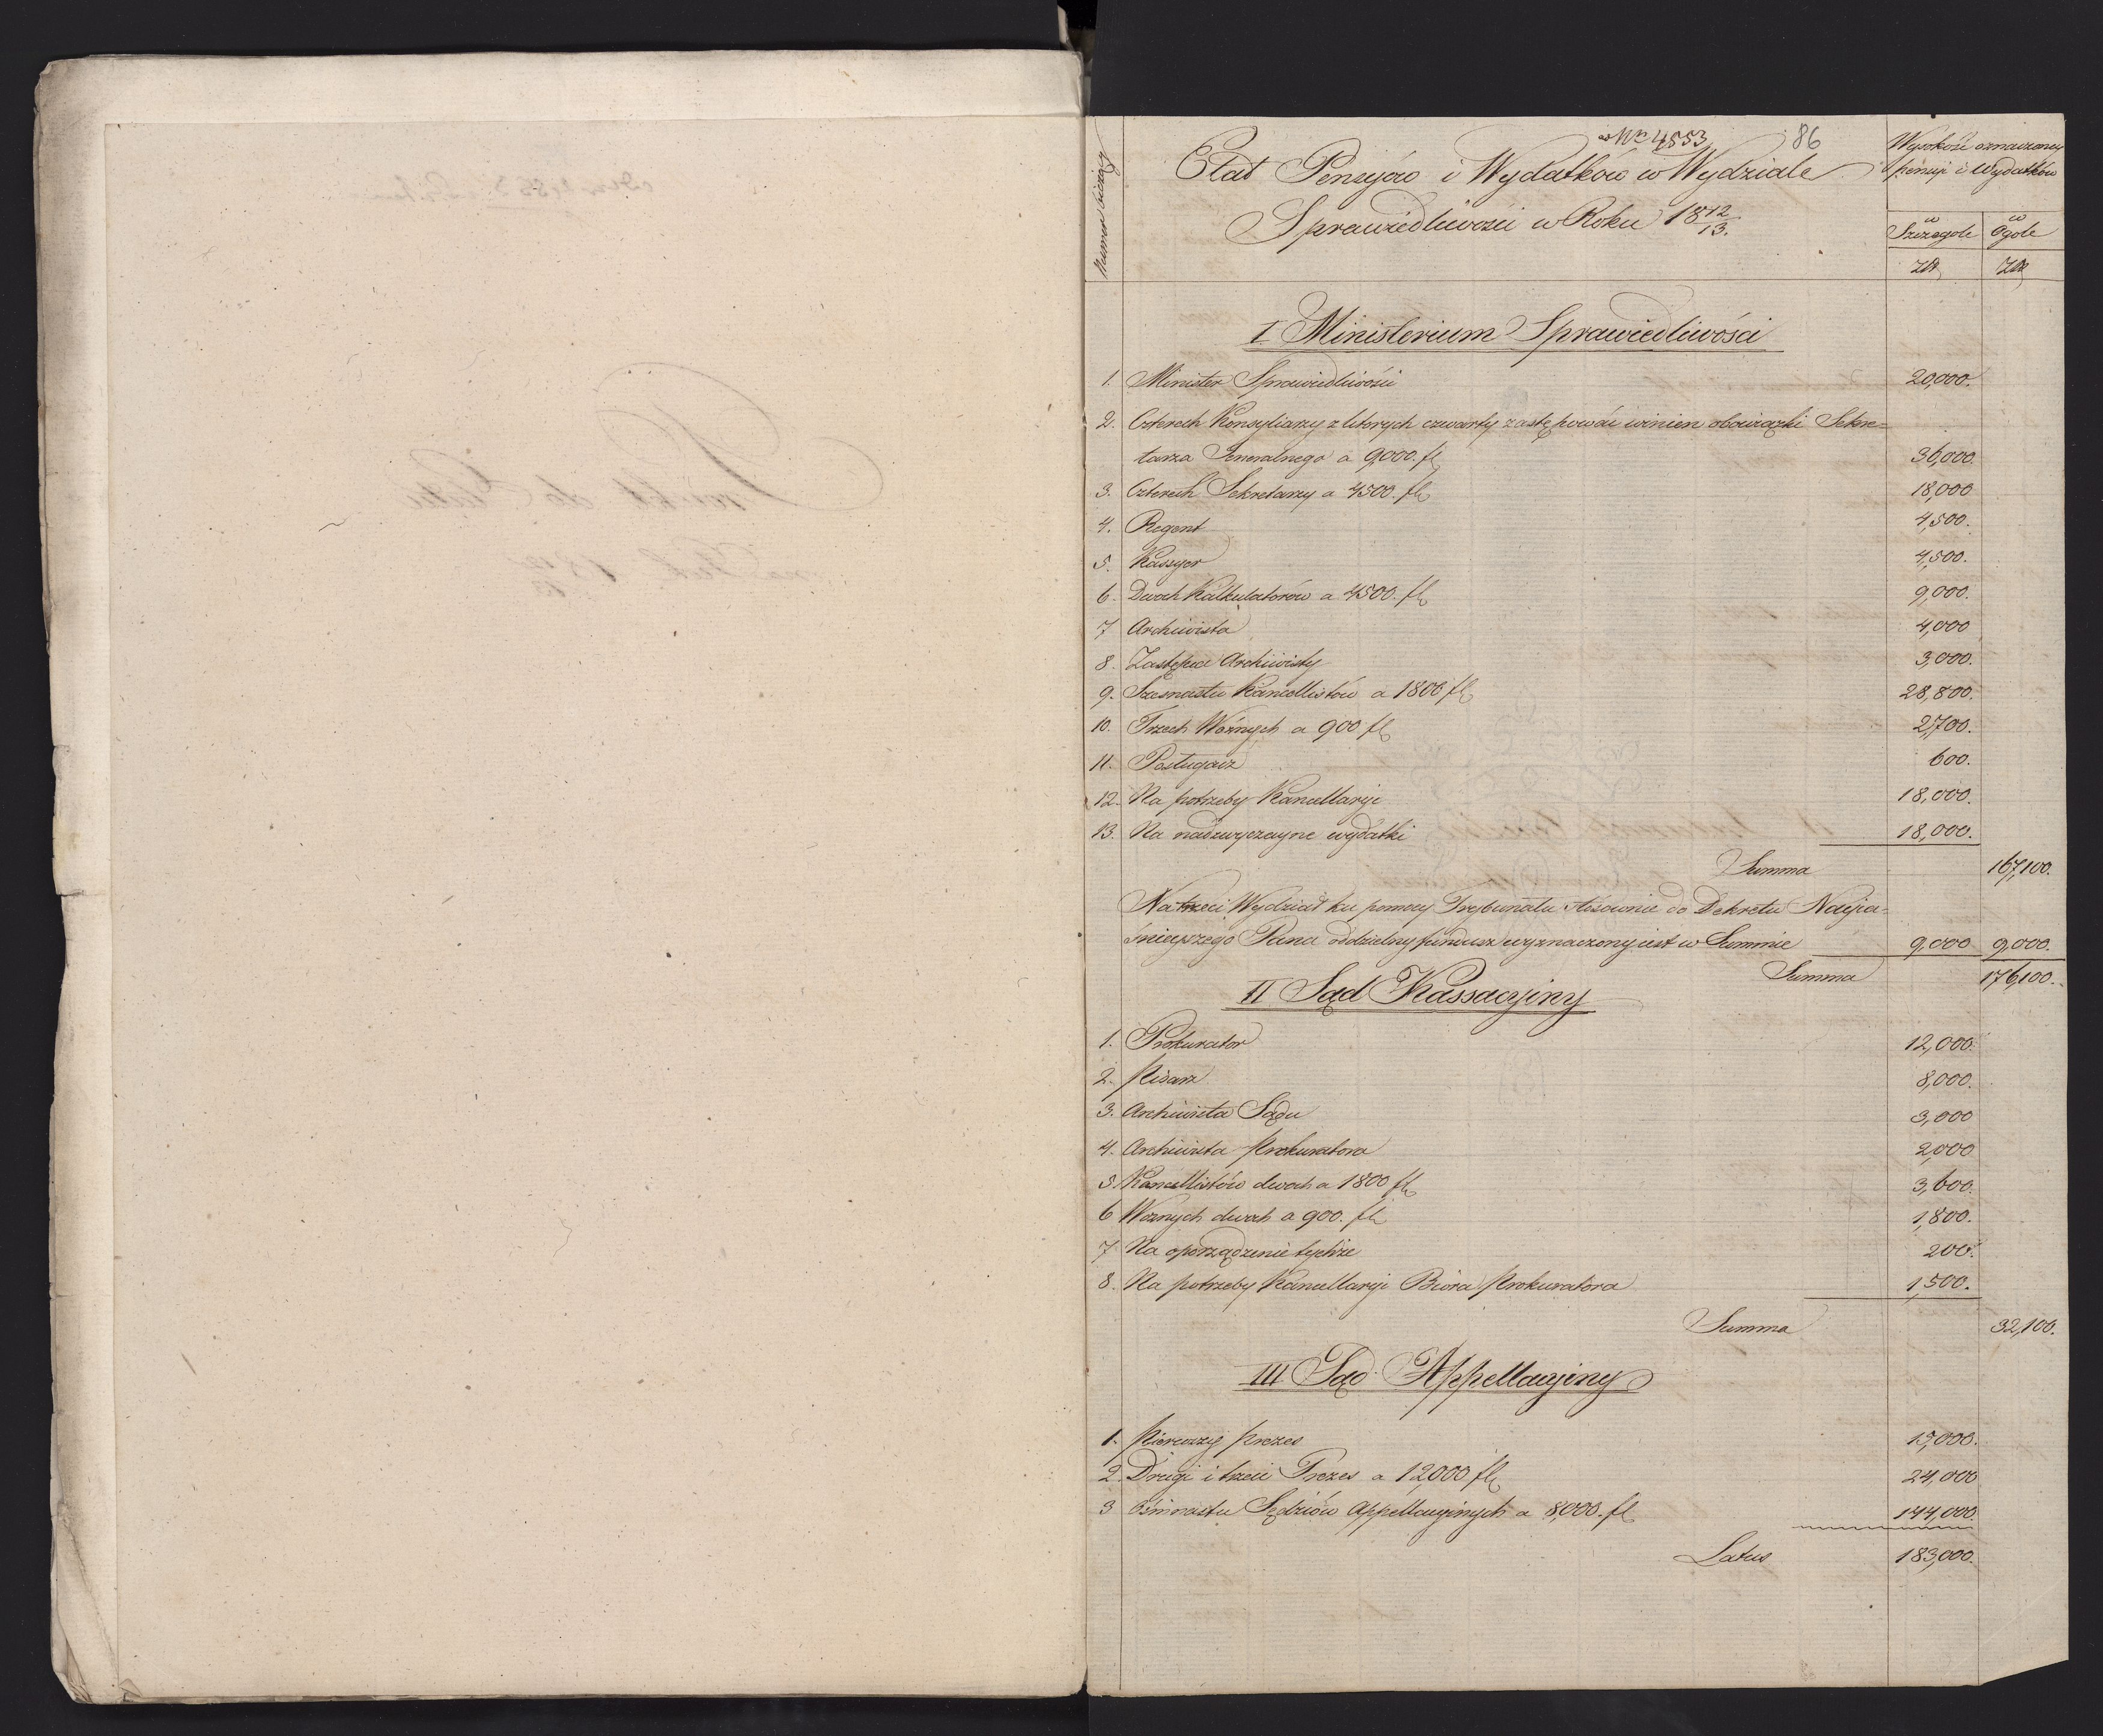 Nr 4553 86
Numer bieżący
Etat Pensyów i Wydatków w Wydziale
Sprawiedliwości w Roku 18 12/13.
Wysokość oznaczonej
pensyi i Wydatków
w Szczegole
w Ogole
Złł
Złł
I Ministerium Sprawiedliwości
1. Minister Sprawiedliwości 20,000.
2. Czterech Konsyliarzy z ktorych czwarty zastępować winien obowiązki Sekre=
tarza Generalnego a 9,000. fl 36,000.
3. Czterech Sekretarzy a 4500. fl 18,000
4. Regent 4,500.
5. Kassyer 4,500.
6. Dwoch Kalkulatorów a 4500. fl 9,000.
7 Archiwista 4,000
8. Zastępca Archiwisty 3,000.
9. Szesnastu Kancellistów a 1800 fl 28,800.
10. Trzech Woźnych a 900 fl 2,700.
11. Posługacz 600.
12. Na potrzeby Kancellaryi 18,000.
13. Na nadzwyczayne wydatki 18,000.
Summa 167,100.
Na trzeci Wydział ku pomocy Trybunału stosownie do Dekretu Nayia=
śnieyszego Pana oddzielny fundusz wyznaczony iest w Summie 9,000 9,000.
Summa 176,100.
II Sąd Kassacyjny
1. Prokurator 12,000.
2. Pisarz 8,000.
3. Archiwista Sądu 3,000
4. Archiwista Prokuratora 2,000
5. Kancellistów dwoch a 1800 fl 3,600.
6 Woznych dwoch a 900. fl 1,800.
7 Na oporządzenie tychże 200.
8. Na potrzeby Kancellaryi Bióra Prokuratora 1,500.
Summa 32,100.
III Sąd Appellacyjny
1. Pierwszy Prezes 15,000.
2. Drugi i trzeci Prezes a 12,000 fl 24,000
3 Ośmnastu Sędziów Appellacyjnych a 8,000. fl 144,000.
Latus 183,000.